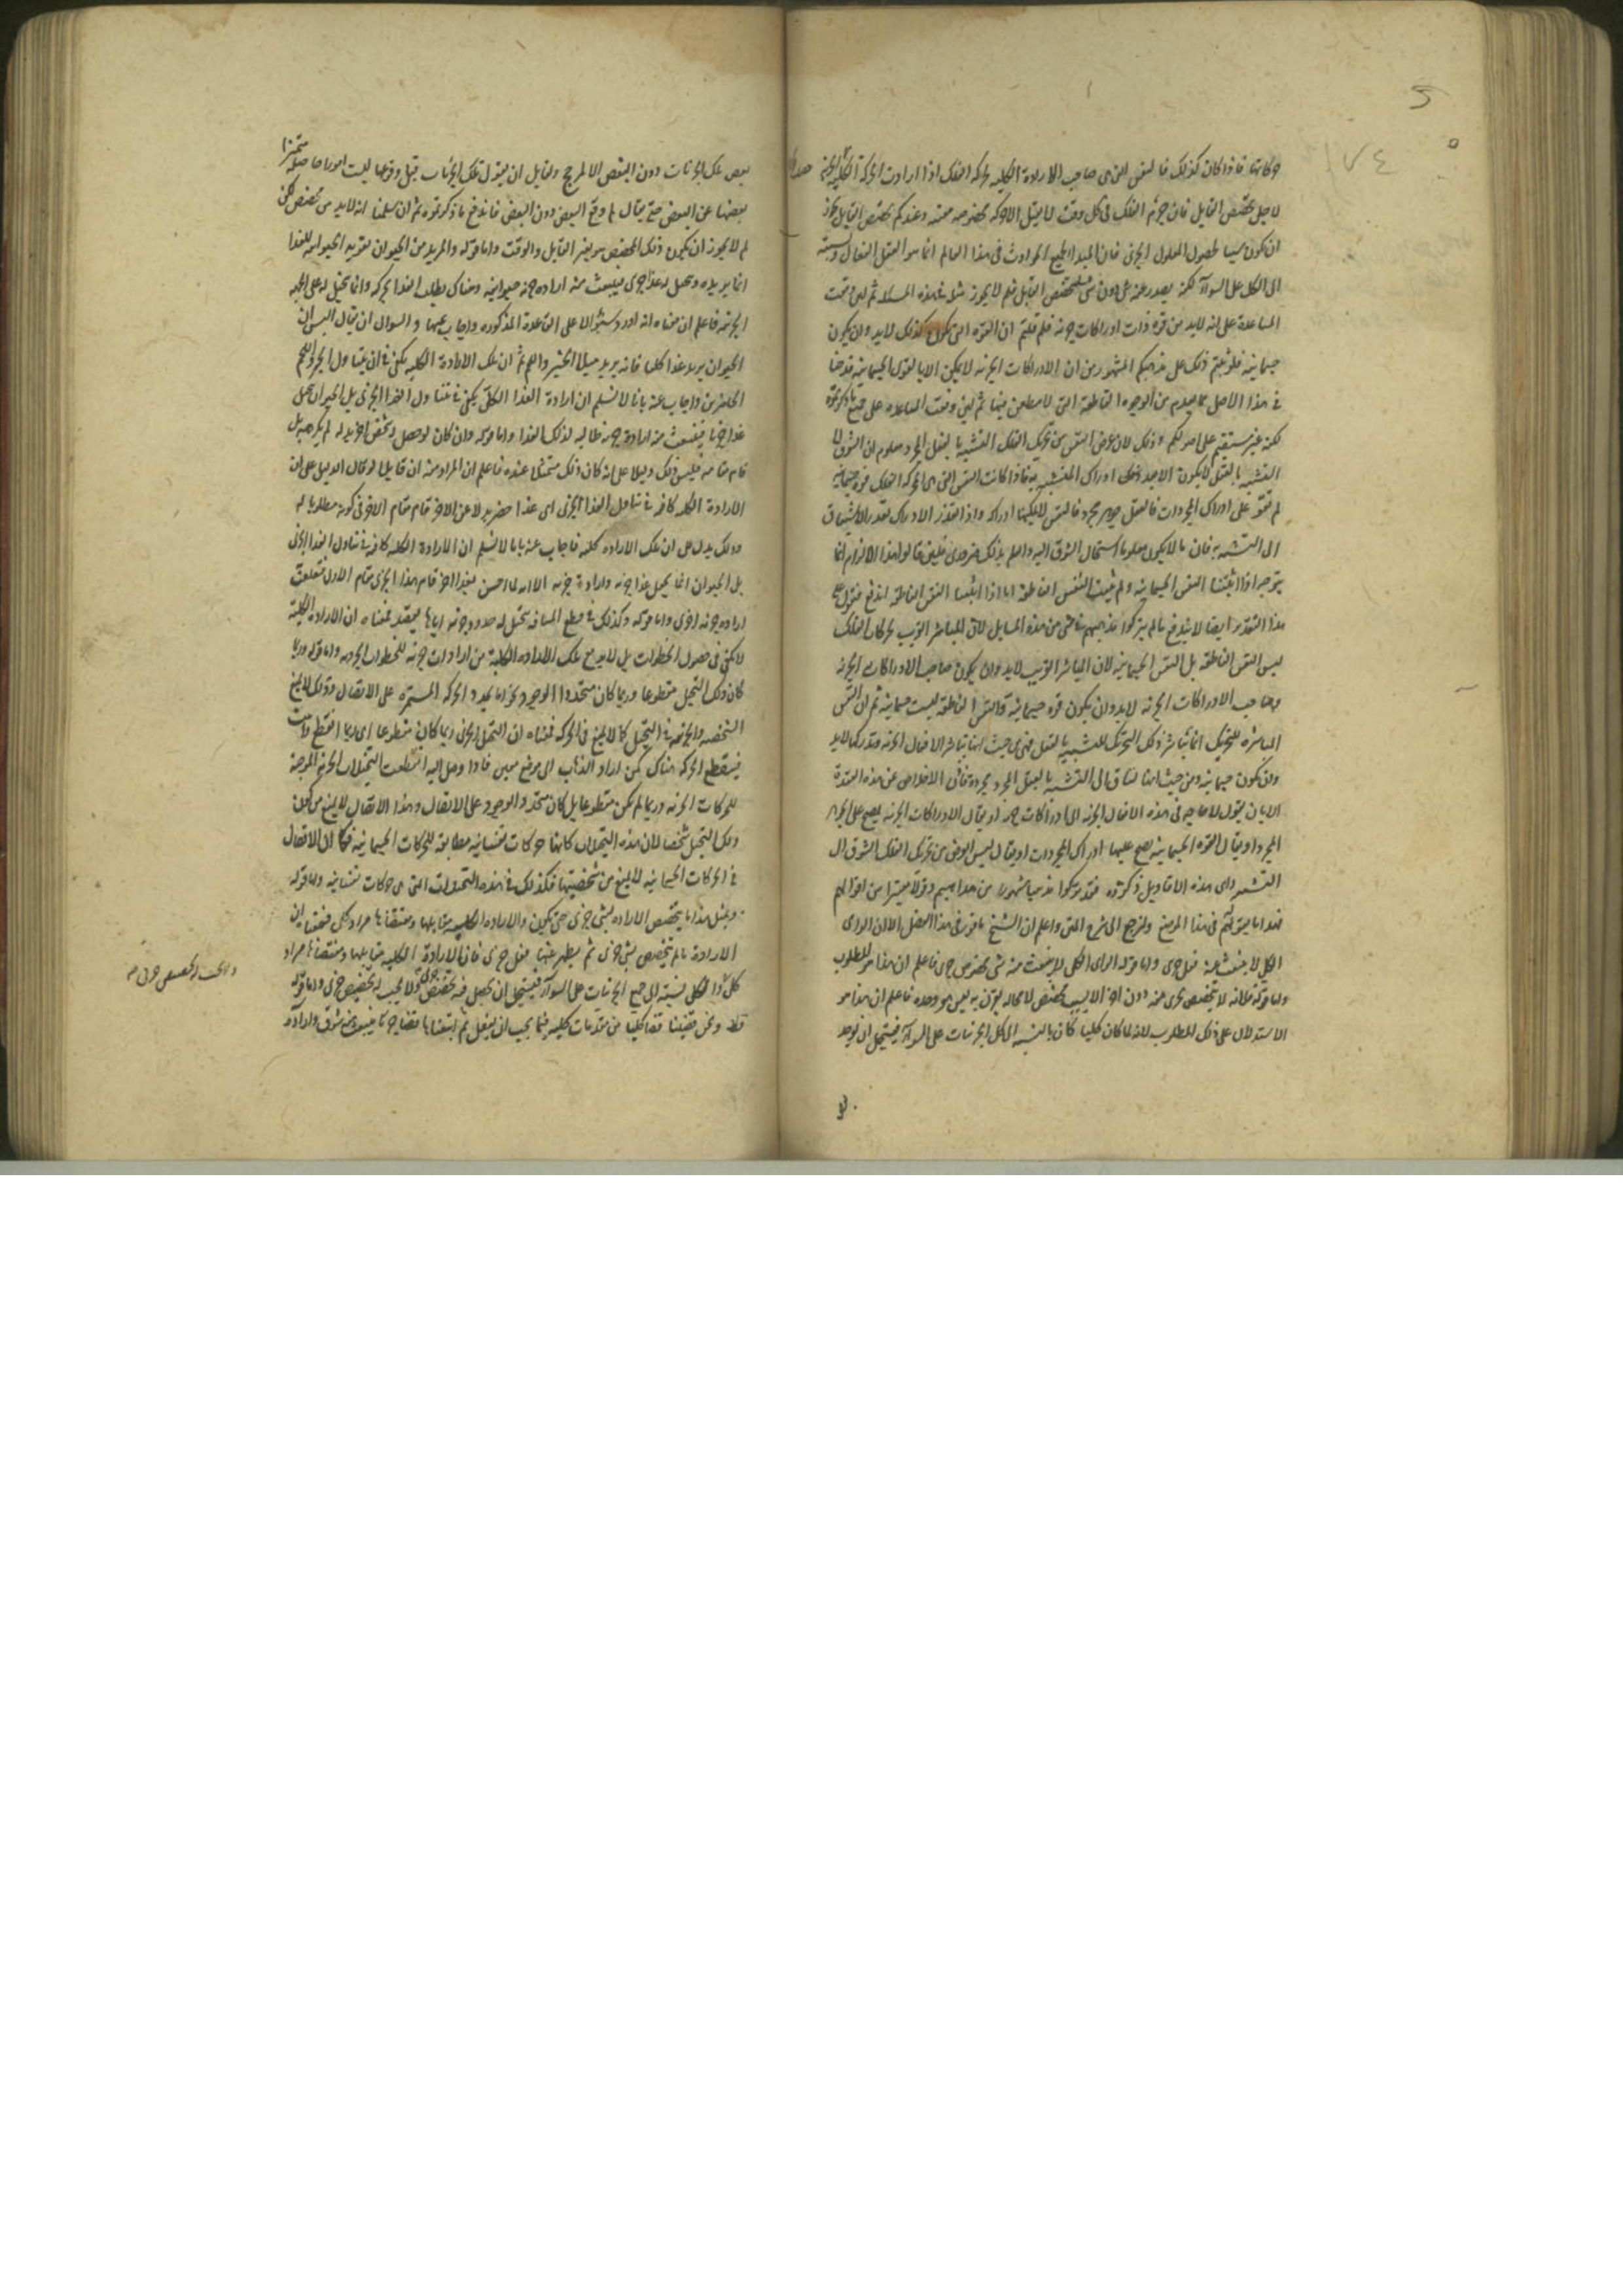 ١٧٤
حركاتها فاذا كان كذلك فالنفس التى هى صاحب الارادة الكلية لحركة الفلك اذا ارادت الحركة الكلية
لاجل تخصص القابل فان جرم الفلك فى كل وقت لا يقبل الا حركة مخصوصة معينة وعندكم تخصص القابل يجوز
ان يكون سببا لحصول المعلول الجزئى فان المبدا لجميع الحوادث فى هذا العالم انما هو العقل الفعال ونسبته
الى الكل على السواء لكنه يصدر عنه شى دون شى لتخصص القابل فلم لا يجوز مثله فى هذه المسئلة ثم لئن وقعت
المساعدة على انه لابد من قوة ذات ادراكات جزئية فلم قلتم ان القوة التى تكون كذلك لابد وان يكون
جسمانية فلو بنيتم ذلك على مذهبكم المشهور من ان الادراكات الجزئية لا يمكن الا بالقوى الجسمانية قدحنا
فى هذا الاصل بما يهدم من الوجوه القاطعة التى لا مطعن فيها ثم لئن وقعت المساعدة على جميع ما ذكرتموه
لكنه غير مستقيم على اصولكم وذلك لان غرض النفس من تحريك الفلك التشبه بالعقل المجرد ومعلوم ان الشوق الى
التشبه بالعقل لا يكون الا بعد ادراك المتشبه به فاذا كانت النفس التى هى المحركة الفلك قوة جسمانية
لم تقو على ادراك المجردات فالعقل جوهر مجرد فالنفس لا يمكنها ادراكه واذا تعذر الادراك تعذر الاشتياق
الى التشبه به فان ما لا يكون معلوما استحال الشوق اليه والعلم بذلك ضرورى فلئن قالوا هذا الالزام انما
يتوجه اذا اثبتنا النفس الجسمانية ولم نثبت النفس الناطقة اما اذا اثبتنا النفس الناطقة اندفع فنقول على
هذا التقدير ايضا لا يندفع ما لم يتركوا مذهبهم فى شى من هذه المسايل لان المباشر القريب لحركات الفلك
ليس النفس الناطقة بل النفس الجسمانية لان المباشر القريب لابد وان يكون صاحب الادراكات الجزئية
وصاحب الادراكات الجزئية لابد وان يكون قوة جسمانية والنفس الناطقة ليست جسمانية ثم ان النفس
المباشرة للتحريك انما تباشر ذلك التحريك للتشبه بالعقل فهى من حيث انها تباشر الافعال الجزئية وتدركها لابد
وان تكون جسمانية ومن حيث انها تشتاق الى التشبه بالعقل المجرد مجردة فانى الاخلاص عن هذه العقدة
الا بان يقول لا حاجة فى هذه الافعال الجزئية الى ادراكات جزئية او يقال الادراكات الجزئية يصح على الجوهر
المجرد او يقال القوة الجسمانية يصح عليها ادراك المجردات او يقال ليس الغرض من تحريك الفلك الشوق الى
التشبه واى هذه الاقاويل ذكروه فقد تركوا مذهبا مشهورا من مذاهبهم وقولا معتبرا من اقوالهم
فهذا ما نقوله فى هذا الموضع ولنرجع الى شرح المتن واعلم ان الشيخ ما قرر فى هذا الفصل الا ان الراى
الكلى لا ينبعث عنه فعل جزئى واما قوله الراى الكلى لا ينبعث منه شى مخصوص جزئى فاعلم ان هذا هو المطلوب
واما قوله فلانه لا يتخصص بجزئى منه دون اخر الا لسبب مخصص لا محالة يقترن به ليس هو وحده فاعلم ان هذا هو
الاستدلال على ذلك المطلوب لانه لما كان كليا كان بالنسبة الى كل الجزئيات على السواء فيستحيل ان يوجد
بعض تلك الجزئيات دون البعض الا لمرجح ولقايل ان يقول تلك الجزئيات قبل وقوعها ليست امورا حاصلة متميزا
بعضها عن البعض حتى يقال لم وقع البعض دون البعض فاندفع ما ذكرتموه ثم ان سلمنا انه لابد من مخصص لكن
لم لا يجوز ان يكون ذلك المخصص هو تغير القابل والوقت واما قوله والمريد من الحيوان بقوته الحيوانية للغذا
انما يريده وتخيل له غذا جزئى فينبعث منه ارادة جزئية حيوانية وهناك يطلب الغذا بحركة وانما يتخيل له على الجهة
الجزئية فاعلم ان معناه انه اورد سؤالا على القاعدة المذكورة واجاب عنها والسوال ان يقال اليس ان
الحيوان يريد غذا كليا فانه يريد مثلا الخبز واللحم ثم ان تلك الارادة الكلية تكفى فى ان يتناول الخبز واللحم
الحاضرين واجاب عنه بانا لا نسلم ان ارادة الغذا الكلى تكفى فى تناول الغذا الجزئى بل الحيوان يتخيل
غذا جزئيا فينبعث منه ارادة جزئية طالبة لذلك الغذا واما قوله وان كان لو حصل له شخص اخر بدله لم يكرهه بل
قام مقامه فليس ذلك دليلا على انه كان ذلك متمثلا عنده فاعلم ان المراد منه ان قايلا لو قال الدليل على ان
الارادة الكلية كافية فى تناول الغذا الجزئى اى غذا حضر بدلا عن الاخر قام مقام الاخر فى كونه مطلوبا له
وذلك يدل على ان تلك الارادة كلية فاجاب عنه بانا لا نسلم ان الارادة الكلية كافية فى تناول الغذا الجزئى
بل الحيوان انما يتخيل غذا جزئيا وارادة جزئية الا انه لما احس بغذا اخر قام هذا الجزئى مقام الاول فتعلقت
ارادة جزئية اخرى واما قوله وكذلك فى قطع المسافة يتخيل له حدود جزئية اياها يقصد فمعناه ان الارادة الكلية
لا تكفى فى حصول الخطوات بل لابد مع تلك الارادة الكلية من ارادات جزئية للخطوات الجزئية واما قوله وربما
كان ذلك التخيل مقطوعا وربما كان متجددا الوجود نحوا ما يتجدد الحركة المستمرة على الاتصال وذلك لا يمنع
الشخصية والجزئية فى التخيل كما لا يمنع فى الحركة فمعناه ان التخيل الجزئى ربما كان منقطعا اى ربما انقطع
فينقطع الحركة هناك كمن اراد الذهاب الى موضع معين فاذا وصل اليه انقطعت التخيلات الجزئية الموجبة
للحركات الجزئية وربما لم يكن منقطعا بل كان متجدد الوجود على الاتصال وهذا الاتصال لا يمنع من كون
ذلك التخيل شخصيا لان هذه التخيلات كانها حركات نفسانية مطابقة للحركات الجسمانية فكما ان الاتصال
فى الحركات الجسمانية لا يمنع من شخصيتها فكذلك فى هذه التخيلات التى هى حركات نفسانية واما قوله
وبمثل هذا ما يتخصص الارادة بشى جزئى حتى يكون والارادة الكلية يقابلها ومقتضاها مراد كلى فمعناه ان
الارادة ما لم يتخصص بشى جزئى ثم يظهر عنها فعل جزئى فان الارادة الكلية يقابلها ومقتضاها مراد
كلى والكلى نسبته الى جميع الجزئيات على السواء فيستحيل ان يحصل فيه تخصص جزئى ولا يجب له تخصيص جزئى واما قوله
ونحن قضينا قضا كليا من مقدمات كلية فيما يجب ان يفعل ثم اتبعناها قضا جزئيا ينبعث منه شوق وارادة